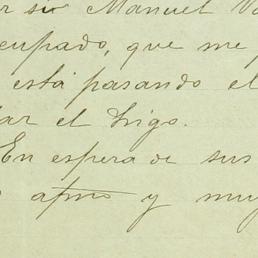 su Manuel
cupado, que me
está pasando el
lar el trigo.
En espera de sus
afmo y muy